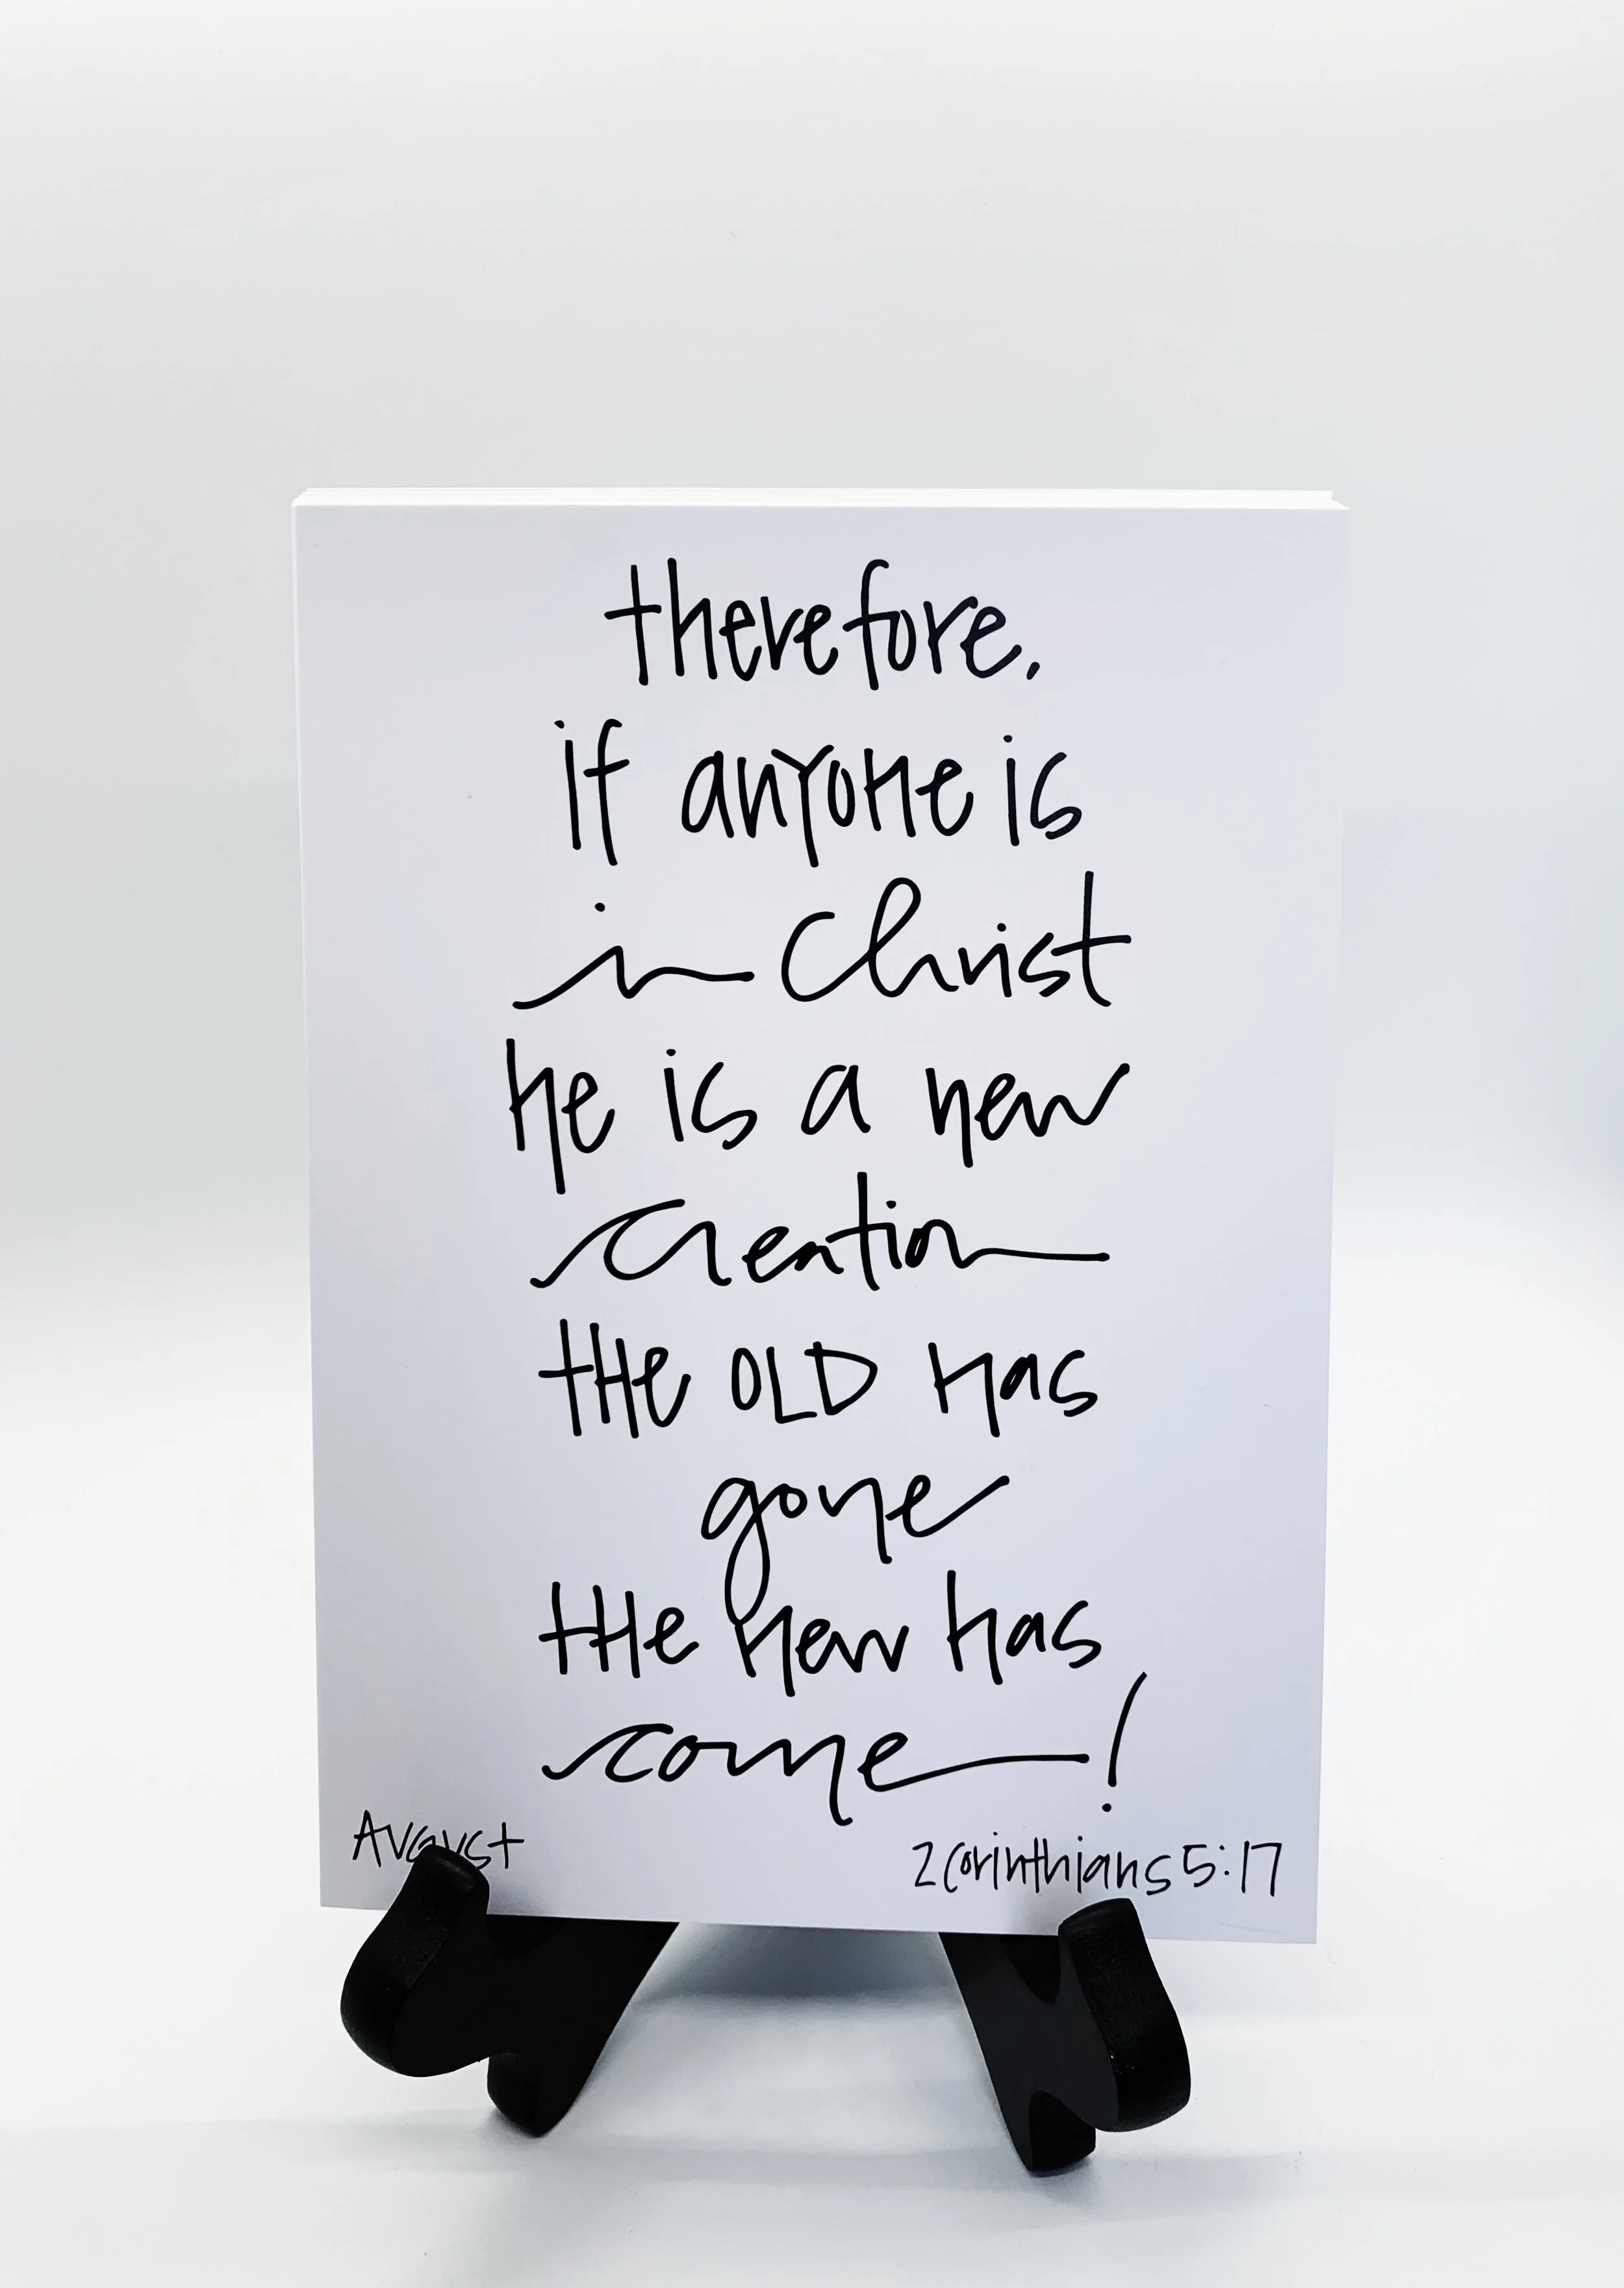 therefore,
if anyone is
in Christ
he is a new
creation
tHe OLD has
gone
tHe new has
come!
August
2 Corinthians 5:17